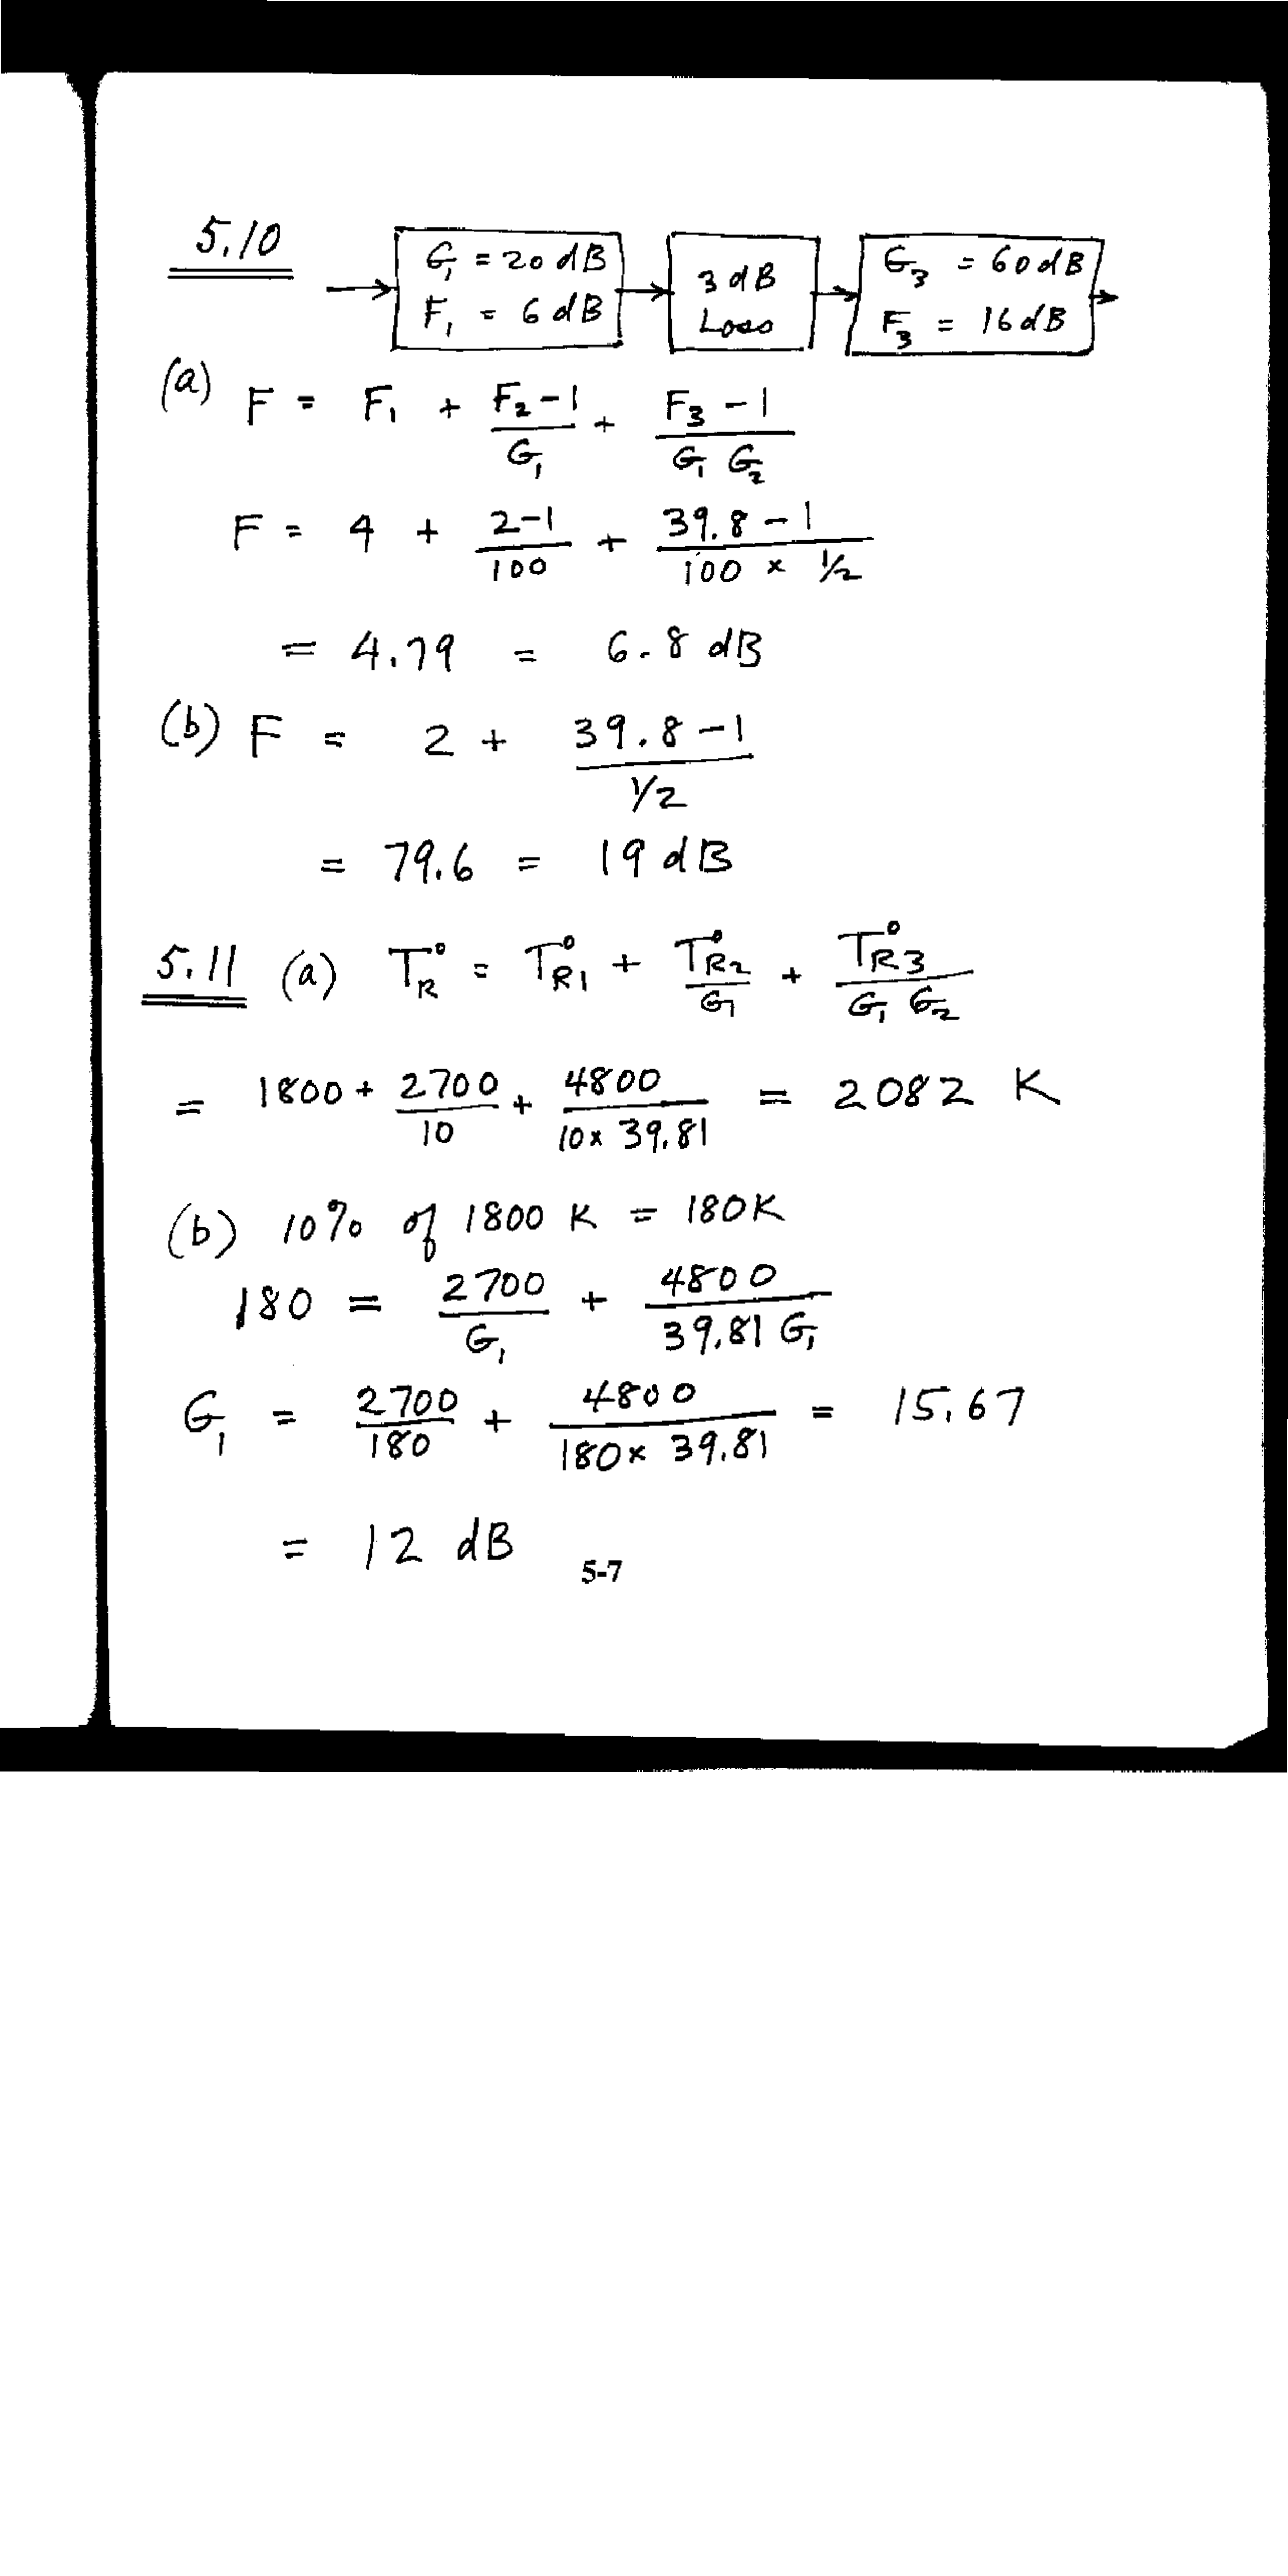 5.10
G₁ = 20 dB
F₁ = 6 dB
3 dB
Loss
G₃ = 60 dB
F₃ = 16 dB
(a) F = F₁ + (F₂ - 1)/G₁ + (F₃ - 1)/(G₁ G₂)
F = 4 + (2-1)/100 + (39.8 - 1)/(100 × 1/2)
= 4.79 = 6.8 dB
(b) F = 2 + (39.8 - 1)/(1/2)
= 79.6 = 19 dB
5.11 (a) T°R = T°R1 + T°R2/G₁ + T°R3/(G₁ G₂)
= 1800 + 2700/10 + 4800/(10 × 39.81) = 2082 K
(b) 10% of 1800 K = 180K
180 = 2700/G₁ + 4800/(39.81 G₁)
G₁ = 2700/180 + 4800/(180 × 39.81) = 15.67
= 12 dB
5-7